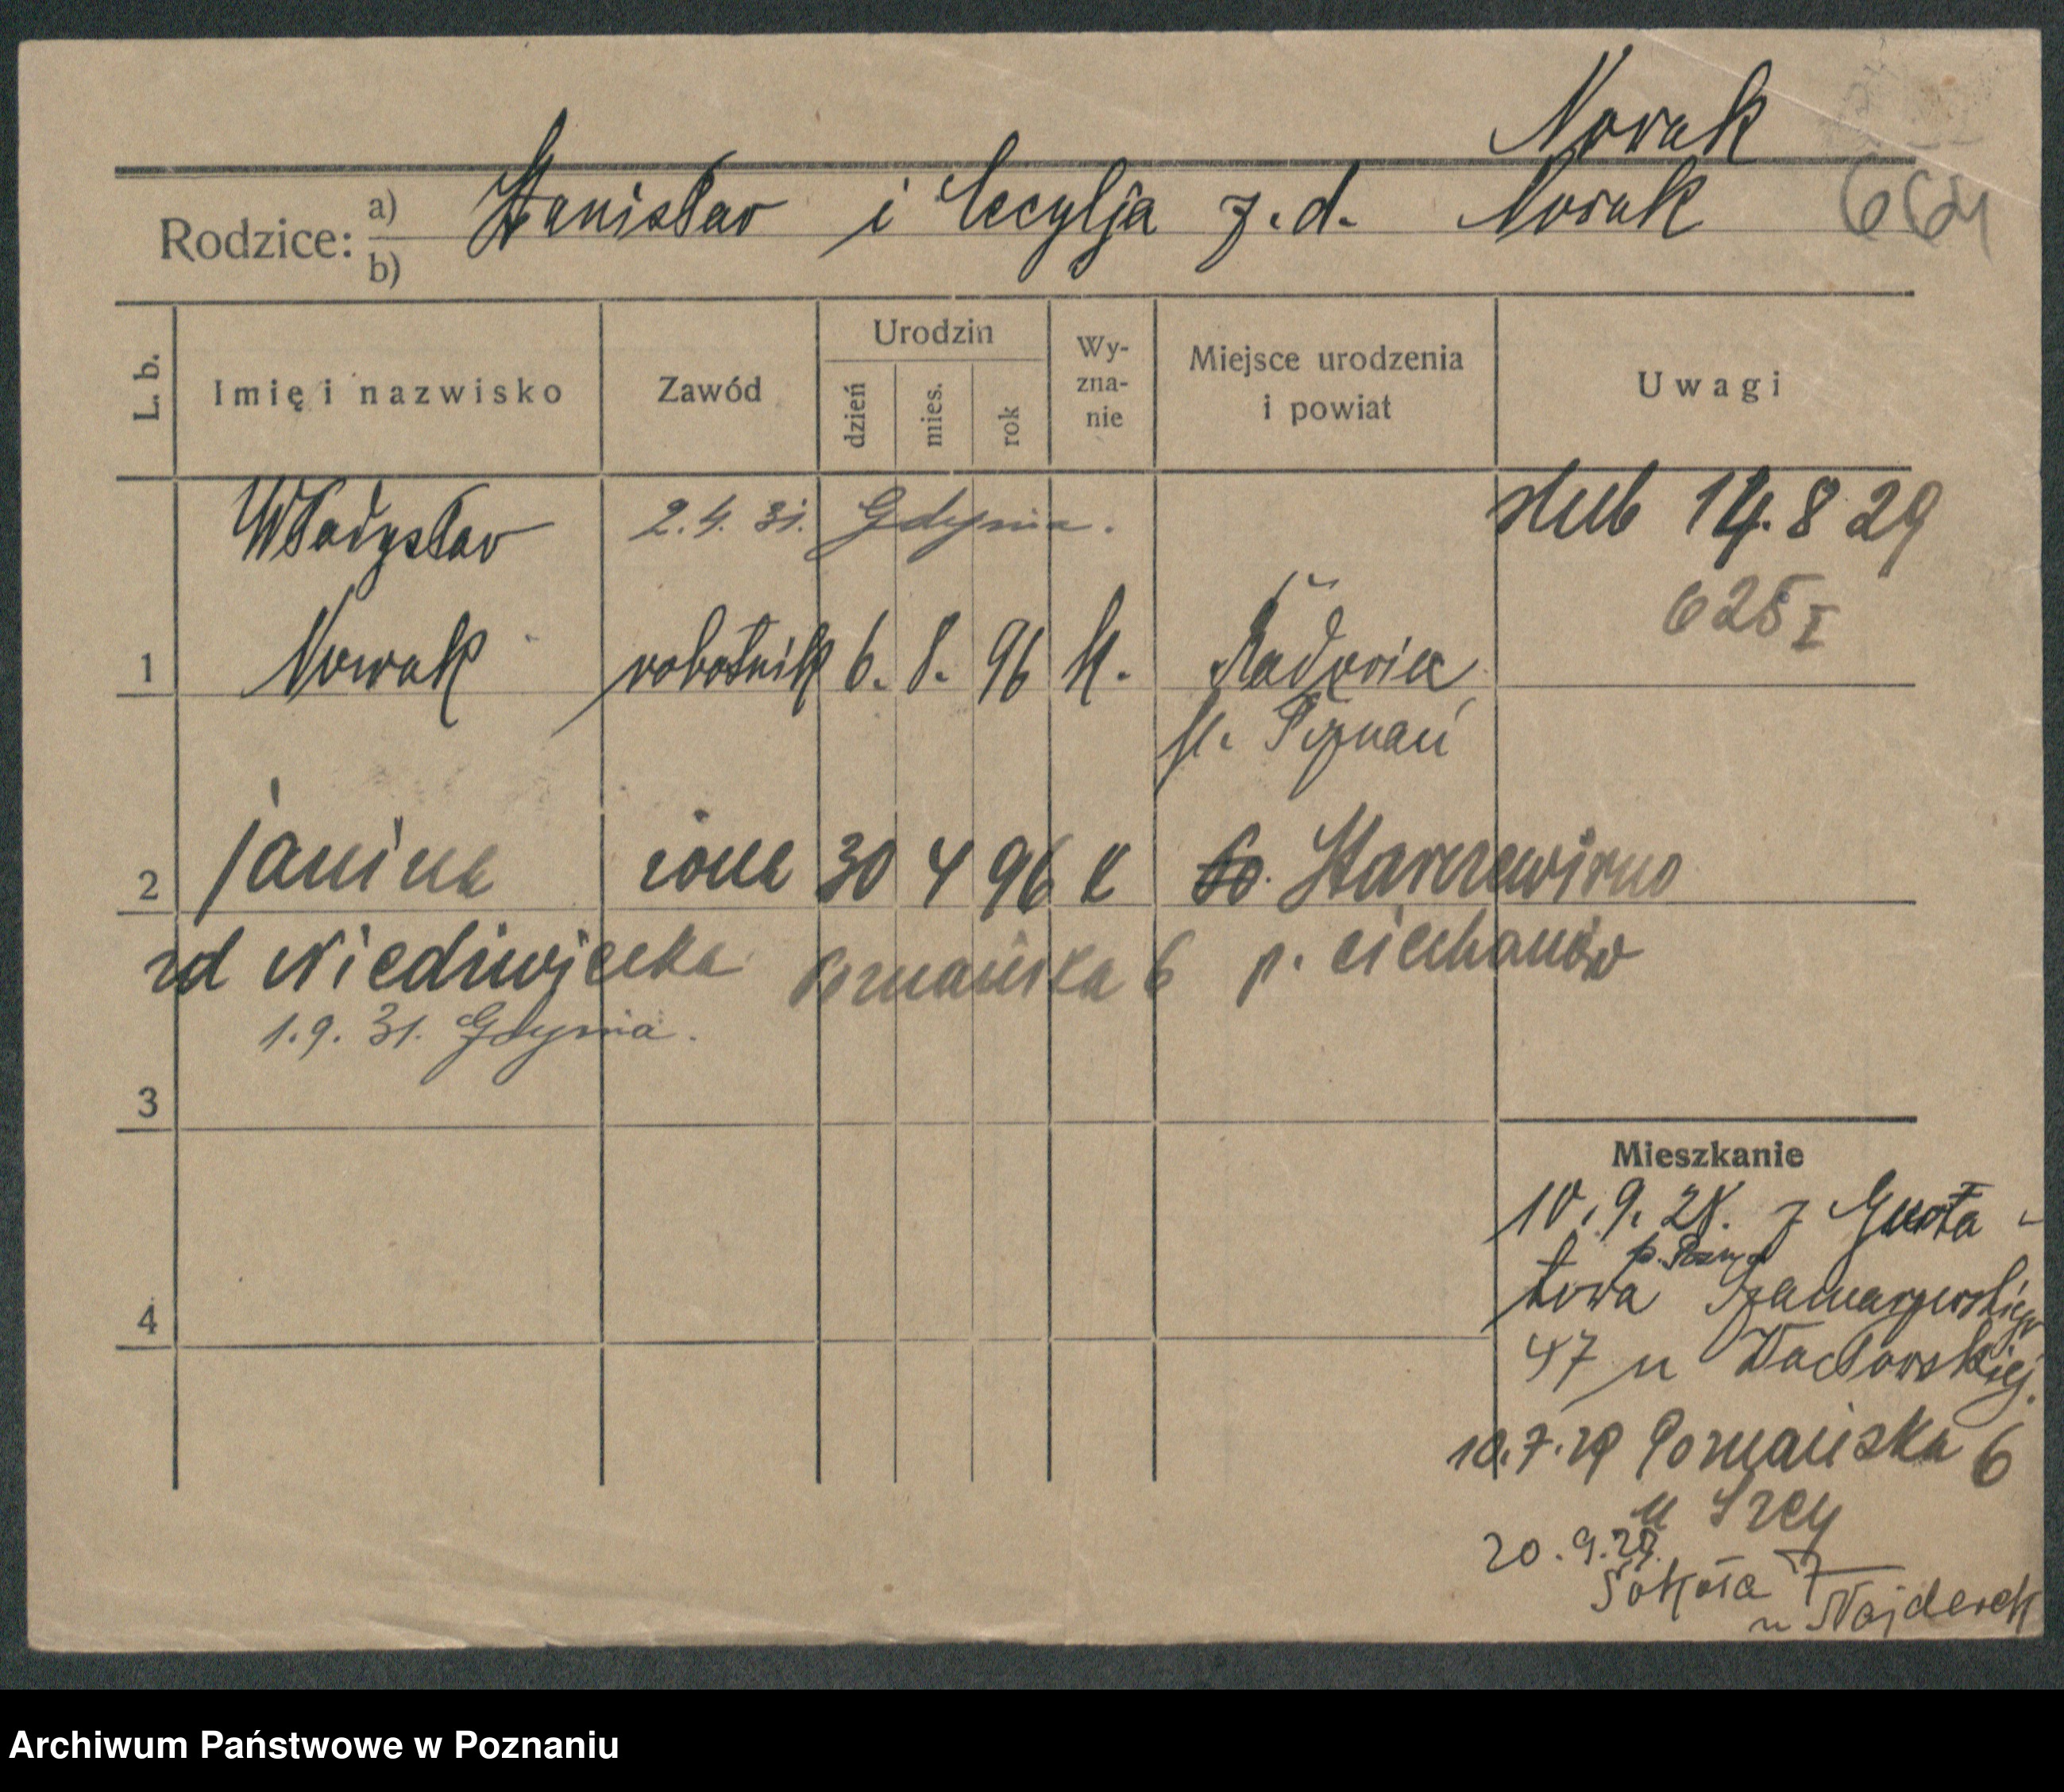 Nowak
Rodzice: a) Stanisław i Cecylja z. d. Nowak 664
b)
L. b. Imię i nazwisko Zawód Urodzin dzień mies. rok Wyznanie Miejsce urodzenia i powiat Uwagi
Władysław 2.4.31. Gdynia. slub 14.8 29
625 I
1 Nowak robotnik 6. 8. 96 k.
Poznań
2 Janina żona 30 4 96 k
zd Niedźwiecka Poznańska 6 p. Ciechanów
1.9.31. Gdynia.
3
Mieszkanie
10.9.28. z Gułta-
p. Pozn.
towa Szamarzewskiego
4
47 u Wacławskiej.
10.7.29 Poznańska 6
u
20.9.29.
Sokoła 7
u
Archiwum Państwowe w Poznaniu